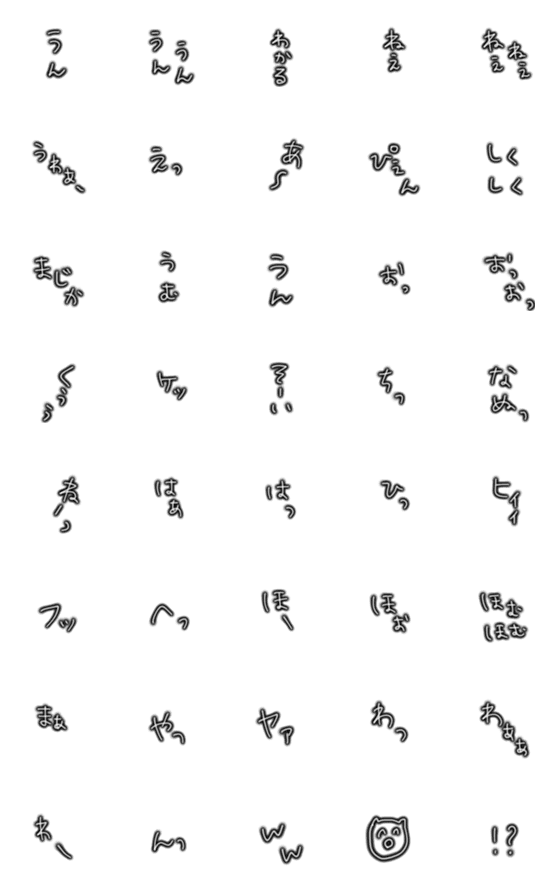 うん
うんうん
わかる
ねぇ
ねぇねぇ
うわぁー
えっ
あ〜
ぴえん
しくしく
まじか
うむ
うん
おっ
おっおっ
くぅぅ
ケッ
そーい
ちっ
なぬっ
はぁ
はっ
ひっ
ヒィィ
フッ
へっ
ほー
ほぉ
ほむほむ
まぁ
やっ
ヤァ
わっ
わぁぁ
わー
んっ
ww
!?